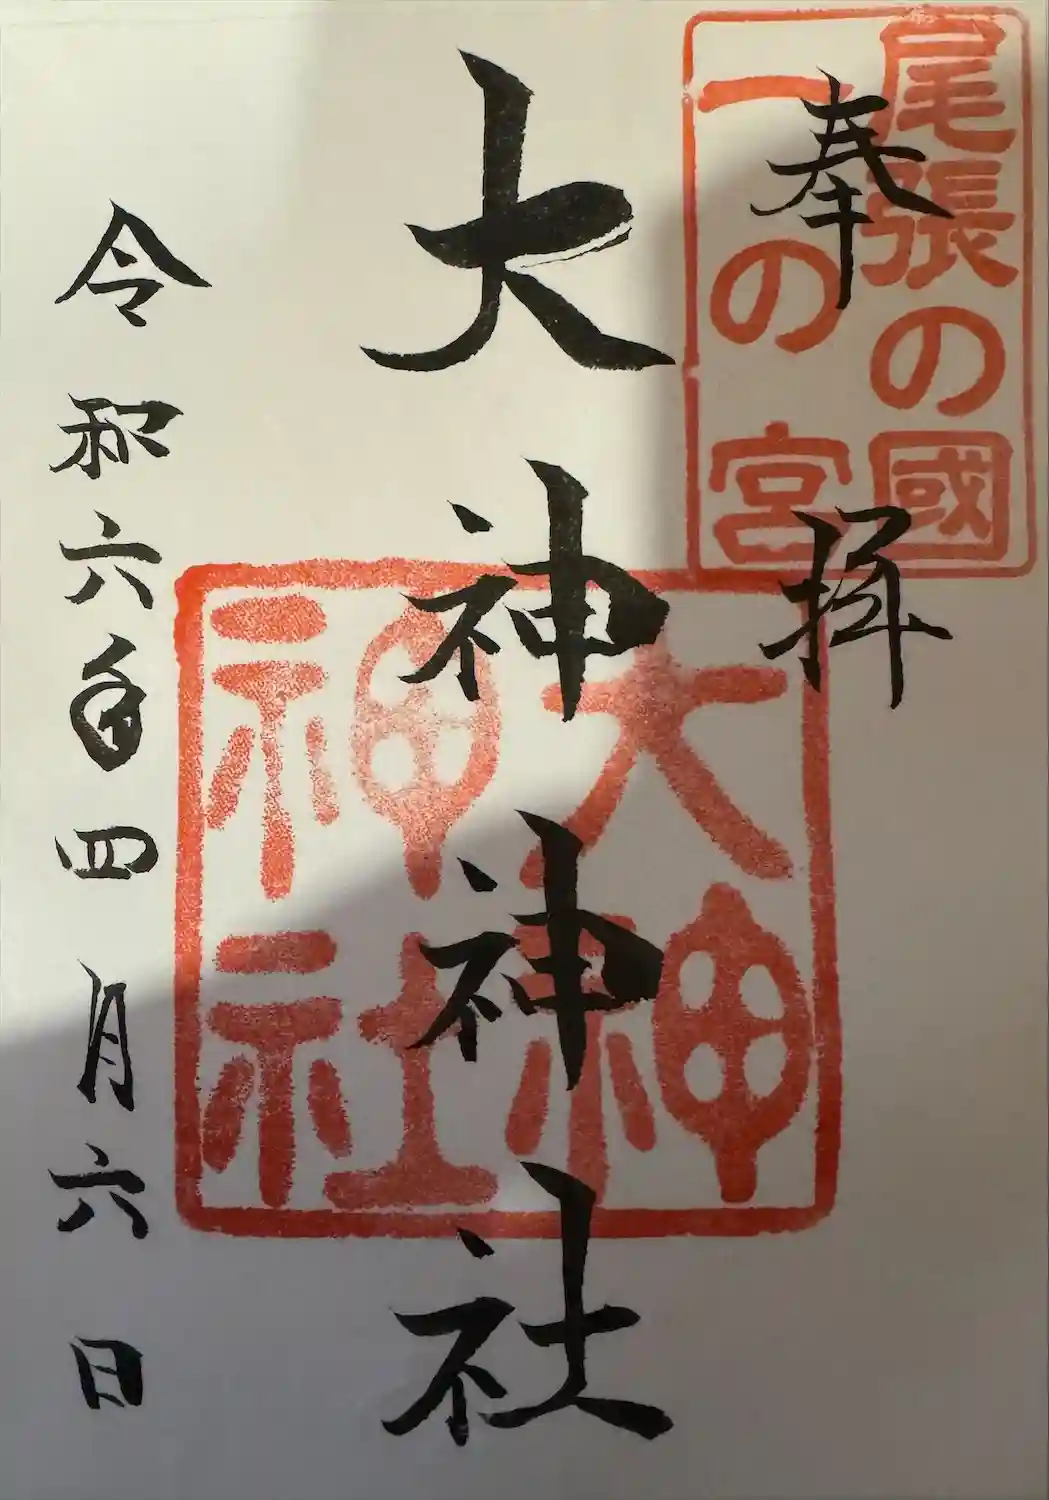 尾張の國
一の宮
奉拝
大神神社
大神
神社
令和六年四月六日